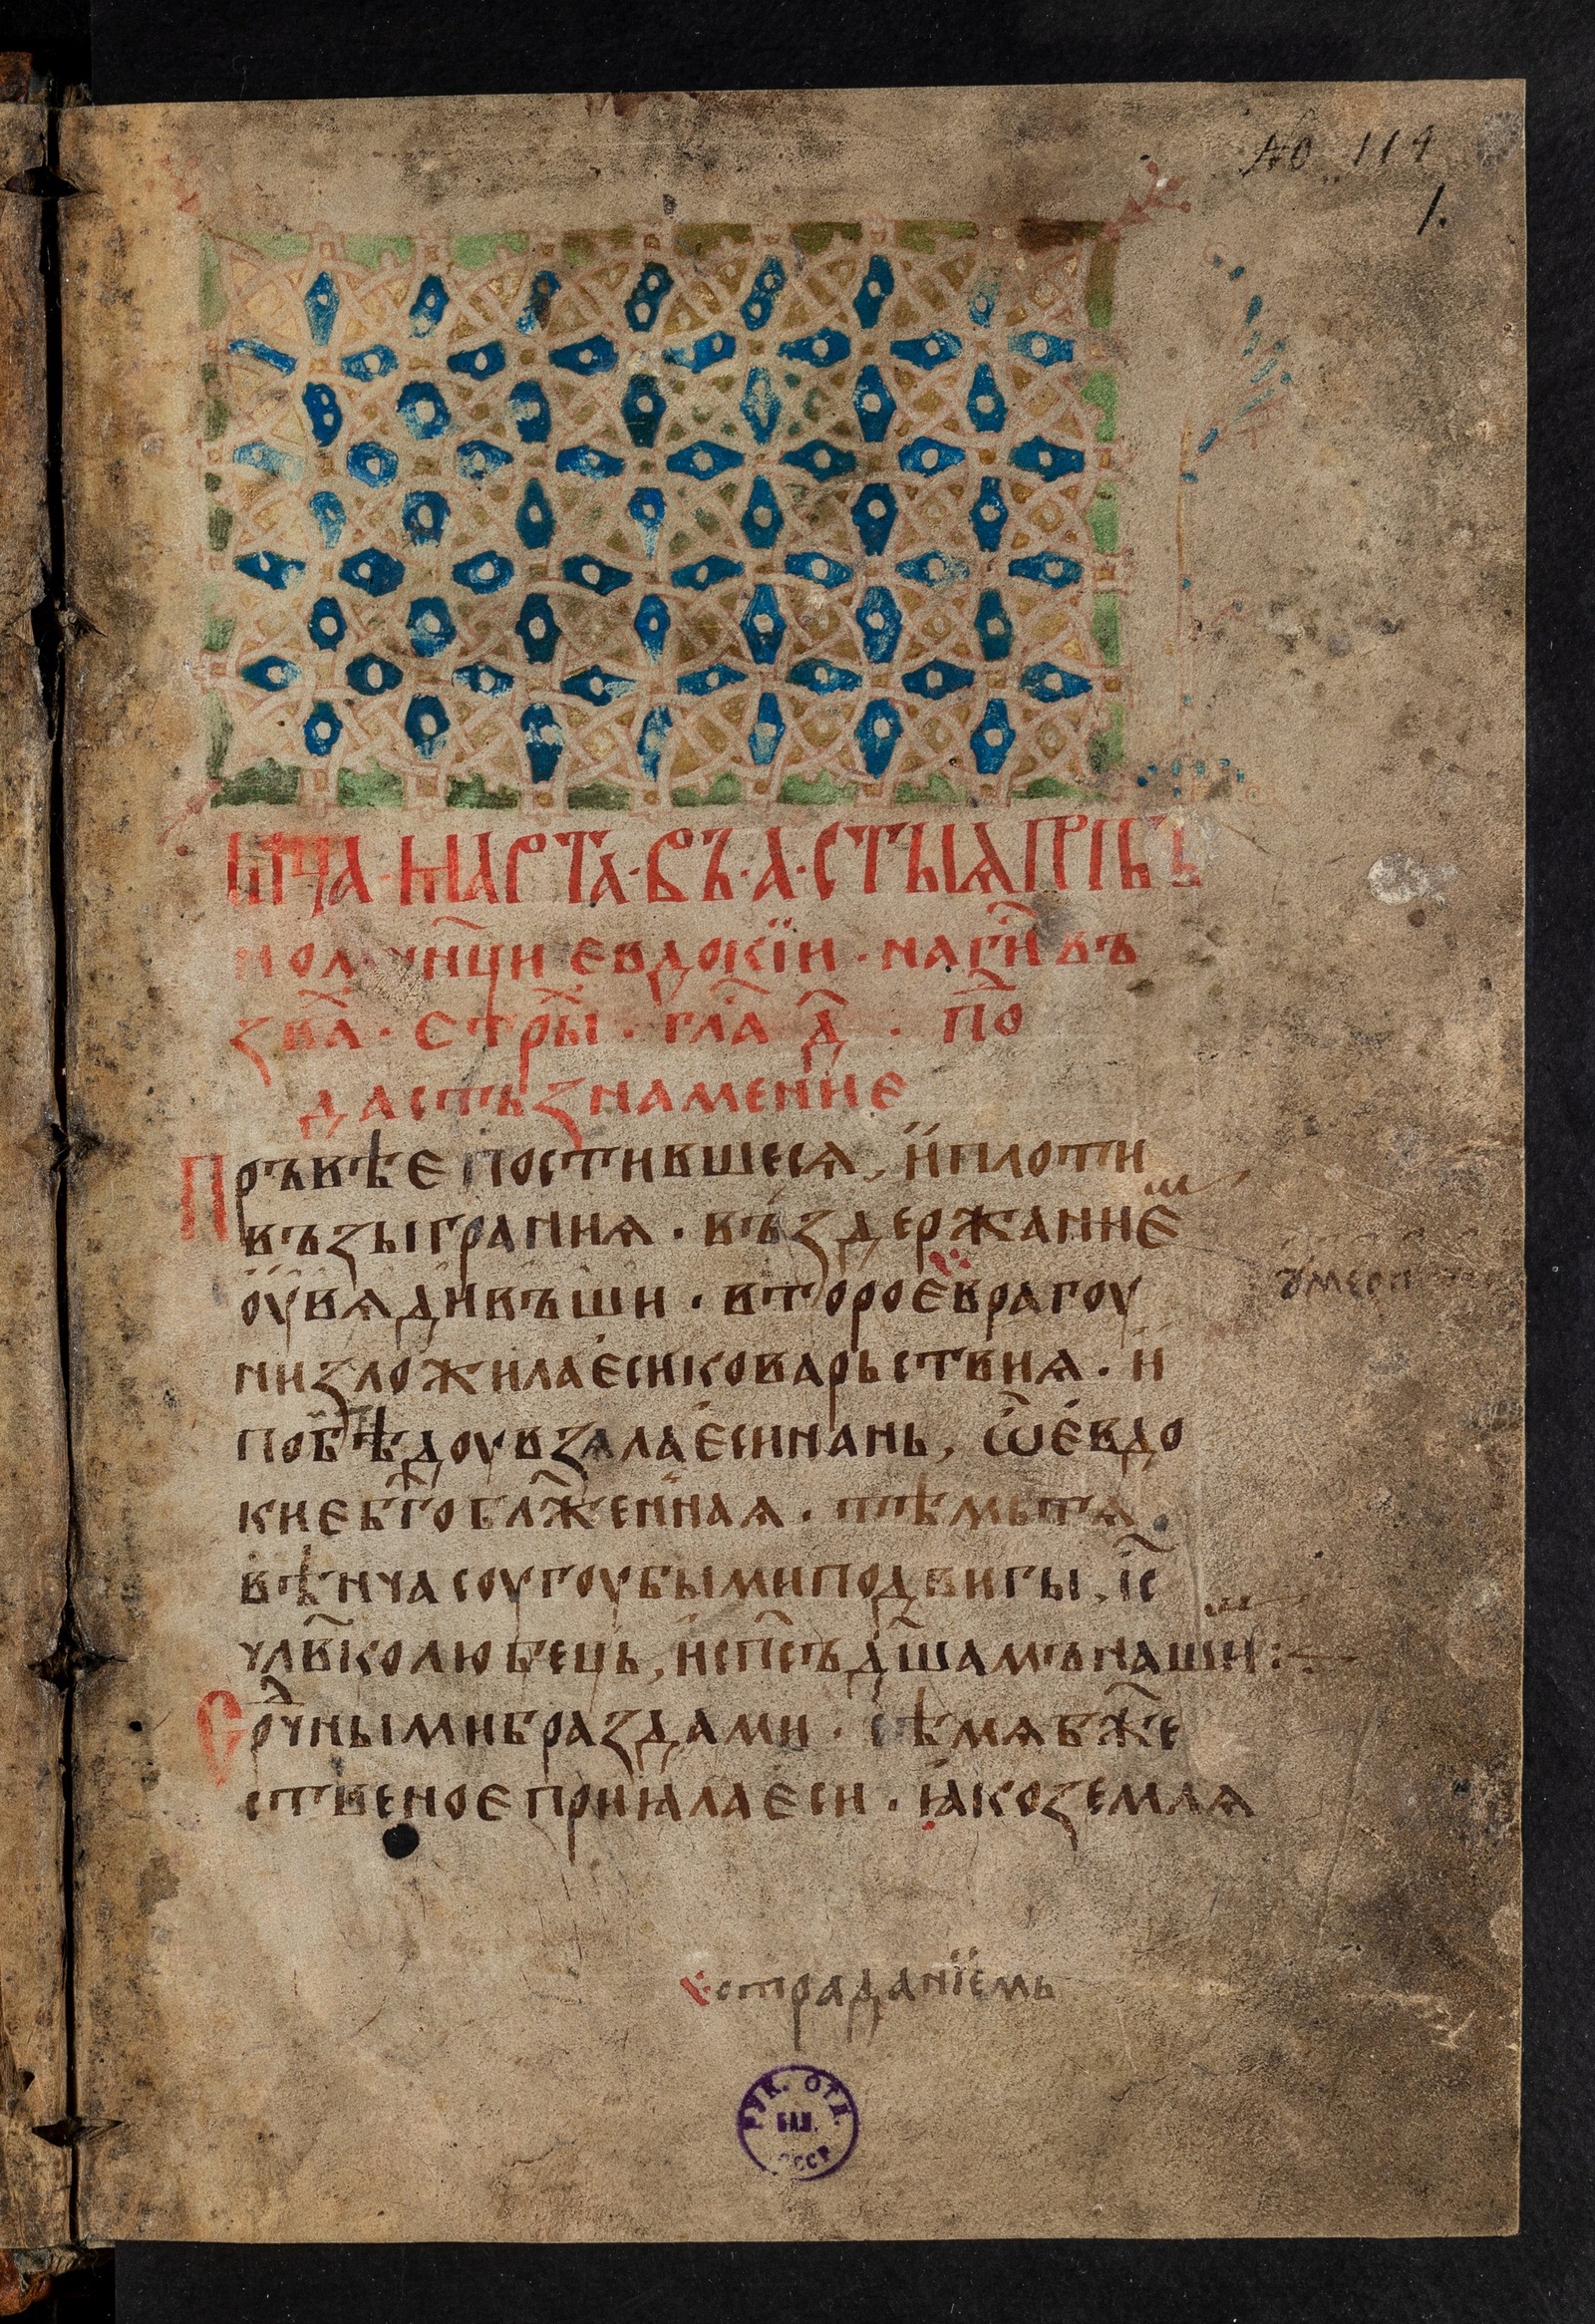 № 114
1.
мц҃а · марта · въ · а · стыꙗ прпⷣбъ
номⷱ҇нци евдокїи · на гⷭ҇и въ
звⷯа · стрⷯы · глⷭ҇а д҃ · по
дасть знамение
Пръвѣе постившесѧ, и плоти
възыграниꙗ · въздержаниеⷨ
оувѧдивъши · второе врагоу
низложила еси коварьствиꙗ · и
побѣдоу взѧла еси нань, ѡ евдо
кие бг҃облⷤ҇еннаꙗ · тѣмь тѧ
вѣнча соугоубыми подвигы, іс҃
члв҃колюбець, и сп҃съ дш҃амъ нашиⷨ :
Срⷣчными браздами · сѣмѧ бж҃е
ственое приꙗла еси · ꙗко землѧ
страданїемь
РУК. ОТД.
БАН.
СССР